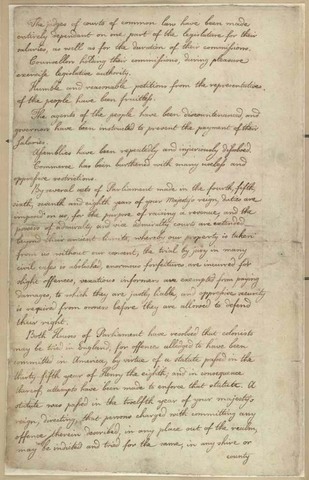 The judges of courts of common law have been made
entirely dependent on one part of the legislature for their
salaries, as well as for the duration of their commissions.
Councellors holding their commissions, during pleasure
exercise legislative authority.
Humble and reasonable petitions from the representatives
of the people have been fruitless.
The agents of the people have been discountenanced, and
governors have been instructed to prevent the payment of their
salaries.
Assemblies have been repeatedly and injuriously dissolved.
Commerce has been burthened with many useless and
oppressive restrictions.
By several acts of Parliament made in the fourth, fifth,
sixth, seventh and eighth years of your Majesty's reign, duties are
imposed on us, for the purpose of raising a revenue, and the
powers of admiralty and vice admiralty courts are extended
beyond their ancient limits, whereby our property is taken
from us without our consent, the trial by jury in many
civil cases is abolished, enormous forfeitures are incurred for
slight offences, vexatious informers are exempted from paying
damages, to which they are justly liable, and oppressive security
is required from owners before they are allowed to defend
their right.
Both Houses of Parliament have resolved that colonists
may be tried in England, for offences alledged to have been
committed in America, by virtue of a statute passed in the
thirty fifth year of Henry the eighth, and in consequence
thereof attempts have been made to enforce that statute. A
statute was passed in the twelfth year of your majesty's
reign, directing, that persons charged with committing any
offence therein described, in any place out of the realm,
may be indicted and tried for the same, in any shire or
county